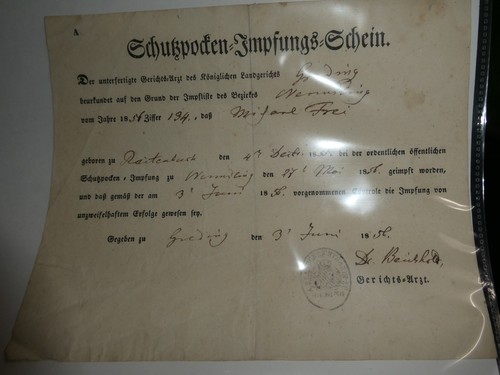 A
Schutzpocken-Impfungs-Schein.
Der unterfertigte Gerichts-Arzt des Königlichen Landgerichts Greding
beurkundet auf den Grund der Impfliste des Bezirkes
vom Jahre 1856 Ziffer 134, daß Michael Frei
geboren zu den bei der ordentlichen öffentlichen
Schutzpocken-Impfung zu den Mai 1856. geimpft worden,
und daß gemäß der am 3t Juni 1856. vorgenommenen Controle die Impfung von
unzweifelhaftem Erfolge gewesen sey.
Gegeben zu Greding den 3t Juni 1856.
Dr.
Gerichts-Arzt.